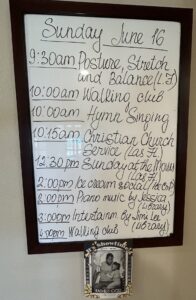 Sunday June 16
9:30am Posture, Stretch
and Balance (L.F)
10:00am Walking club
10:00am Hymn Singing
10:15am Christian Church
Service (Las F)
12:30pm Sunday at the Movies
(Las F)
2:00pm Ice cream social
2:00pm Piano music by
(Library)
3:00pm Intertainm by Jimi Lee
(Library)
4:00pm Walking club
Showtime